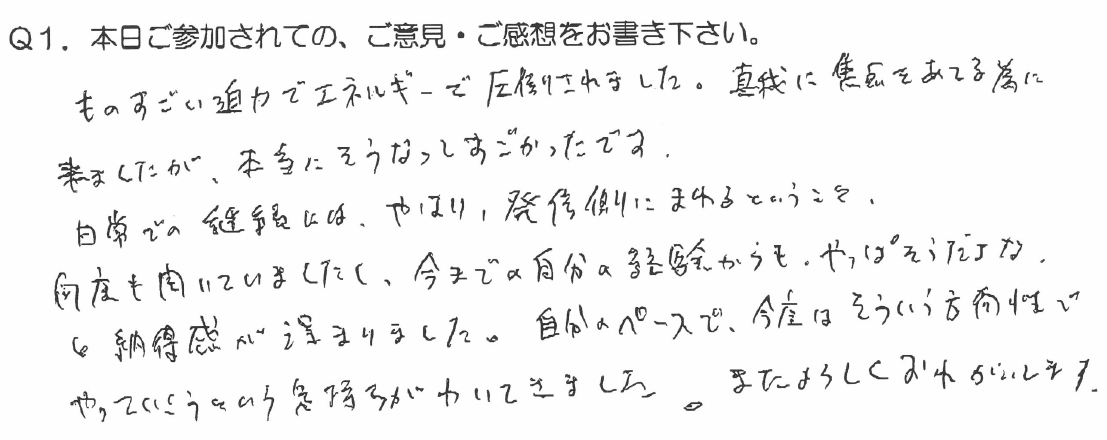 Q1. 本日ご参加されての、ご意見・ご感想をお書き下さい。
ものすごい迫力でエネルギーで圧倒されました。真我に焦点をあてる為に
来ましたが、本当にそうなっしすごかったです。
日常での継続には、やはり、発信側にまわるということ、
何度も聞いていましたし、今までの自分の経験からも、やっぱそうだよな、
と納得感が深まりました。自分のペースで、今度はそういう方向性で
やっていこうという気持ちがわいてきました。またよろしくおねがいします。